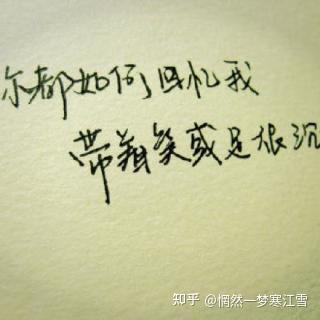 尔都如何回忆我
带着笑或是很沉
知乎 @惘然一梦寒江雪